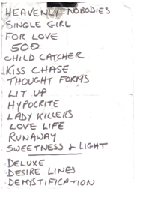 HEAVENLY NOBODIES
SINGLE GIRL
FOR LOVE
500
CHILD CATCHER
KISS CHASE
THOUGHT FORMS
LIT UP
HYPOCRITE
LADY KILLERS
LOVE LIFE
RUNAWAY
SWEETNESS & LIGHT
DELUXE
DESIRE LINES
DEMYSTIFICATION